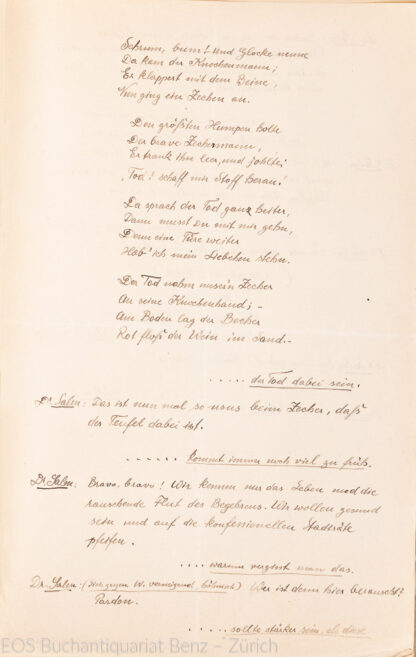 Schrum, bum! Und Glocke neune
Da kam der Knochenmann;
Er klappert mit dem Beine,
Nun ging ein Zechen an.
Den größten Humpen holte
Der brave Zechermann,
Er trank ihn leer, und johlte:
"Tod! schaff mir Stoff heran!
Da sprach der Tod ganz heiter,
Dann musst Du mit mir gehn,
Denn eine Türe weiter
Hab' ich mein Liebchen stehn.
Der Tod nahm unsern Zecher
An seine Knochenhand; -
Am Boden lag der Becher
Rot floß der Wein im Sand.-
..... der Tod dabei sein.
Dr. Salm: Das ist nun mal so beim Zecher, daß
der Teufel dabei ist.
...... kommt immer noch viel zu früh.
Dr. Salm: Bravo, bravo! Wir kennen nur das Leben und die
rauschende Flut des Begehrens. Wir wollen gesund
sein und auf die konfessionellen Stadträte
pfeifen.
..... warum vergisst man das.
Dr. Salm: (sich gegen W. verneigend, höhnisch) Wer ist denn hier berauscht?
Pardon.
..... sollte stärker sein, als diese
EOS Buchantiquariat Benz - Zürich